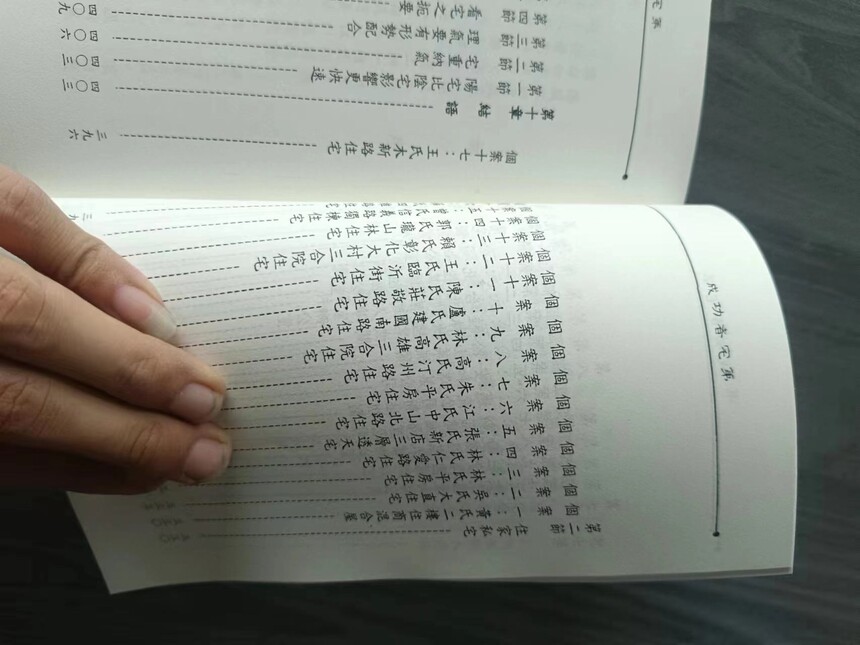 成功者宅第
第二節 住家私宅
個案一：黃氏二樓住商混合屋
個案二：吳氏大直住宅
個案三：林氏平房住宅
個案四：林氏仁愛路住宅
個案五：張氏新店三層透天宅
個案六：江氏中山北路住宅
個案七：朱氏平房住宅
個案八：高氏汀州路住宅
個案九：林氏高雄三合院住宅
個案十：盧氏建國南路住宅
個案十一：陳氏莊敬路住宅
個案十二：王氏臨沂街住宅
個案十三：賴氏彰化大村三合院住宅
個案十四：郭氏瓏山林住宅
宅第
個案十七：王氏木新路住宅 三九六
第十章 結語
第一節 陽宅比陰宅影響更快速 四〇三
第二節 宅重納氣 四〇三
第三節 理氣要有形勢配合 四〇六
第四節 看宅之扼要 四〇九